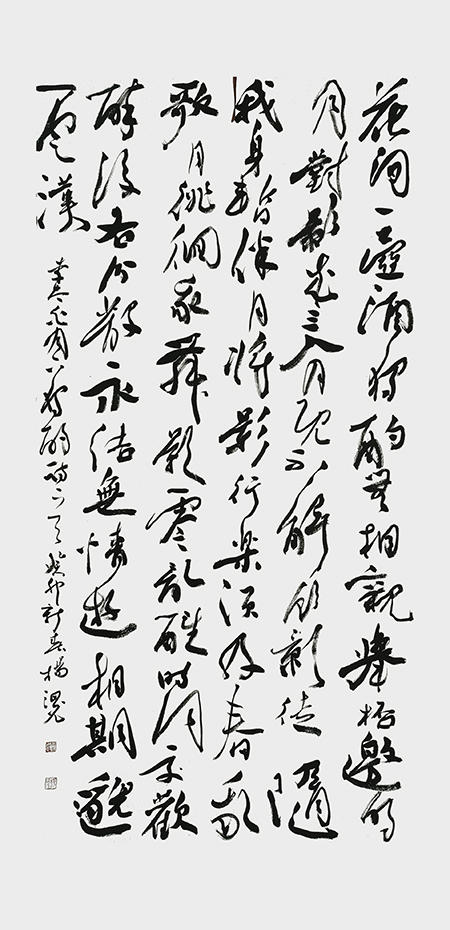 花間一壺酒獨酌無相親舉杯邀明
月對影成三人月既不解飲影徒隨
我身暫伴月將影行樂須及春我
歌月徘徊我舞影零亂醒時同交歡
醉後各分散永結無情遊相期邈
雲漢
月下獨酌詩一首 癸卯新春楊